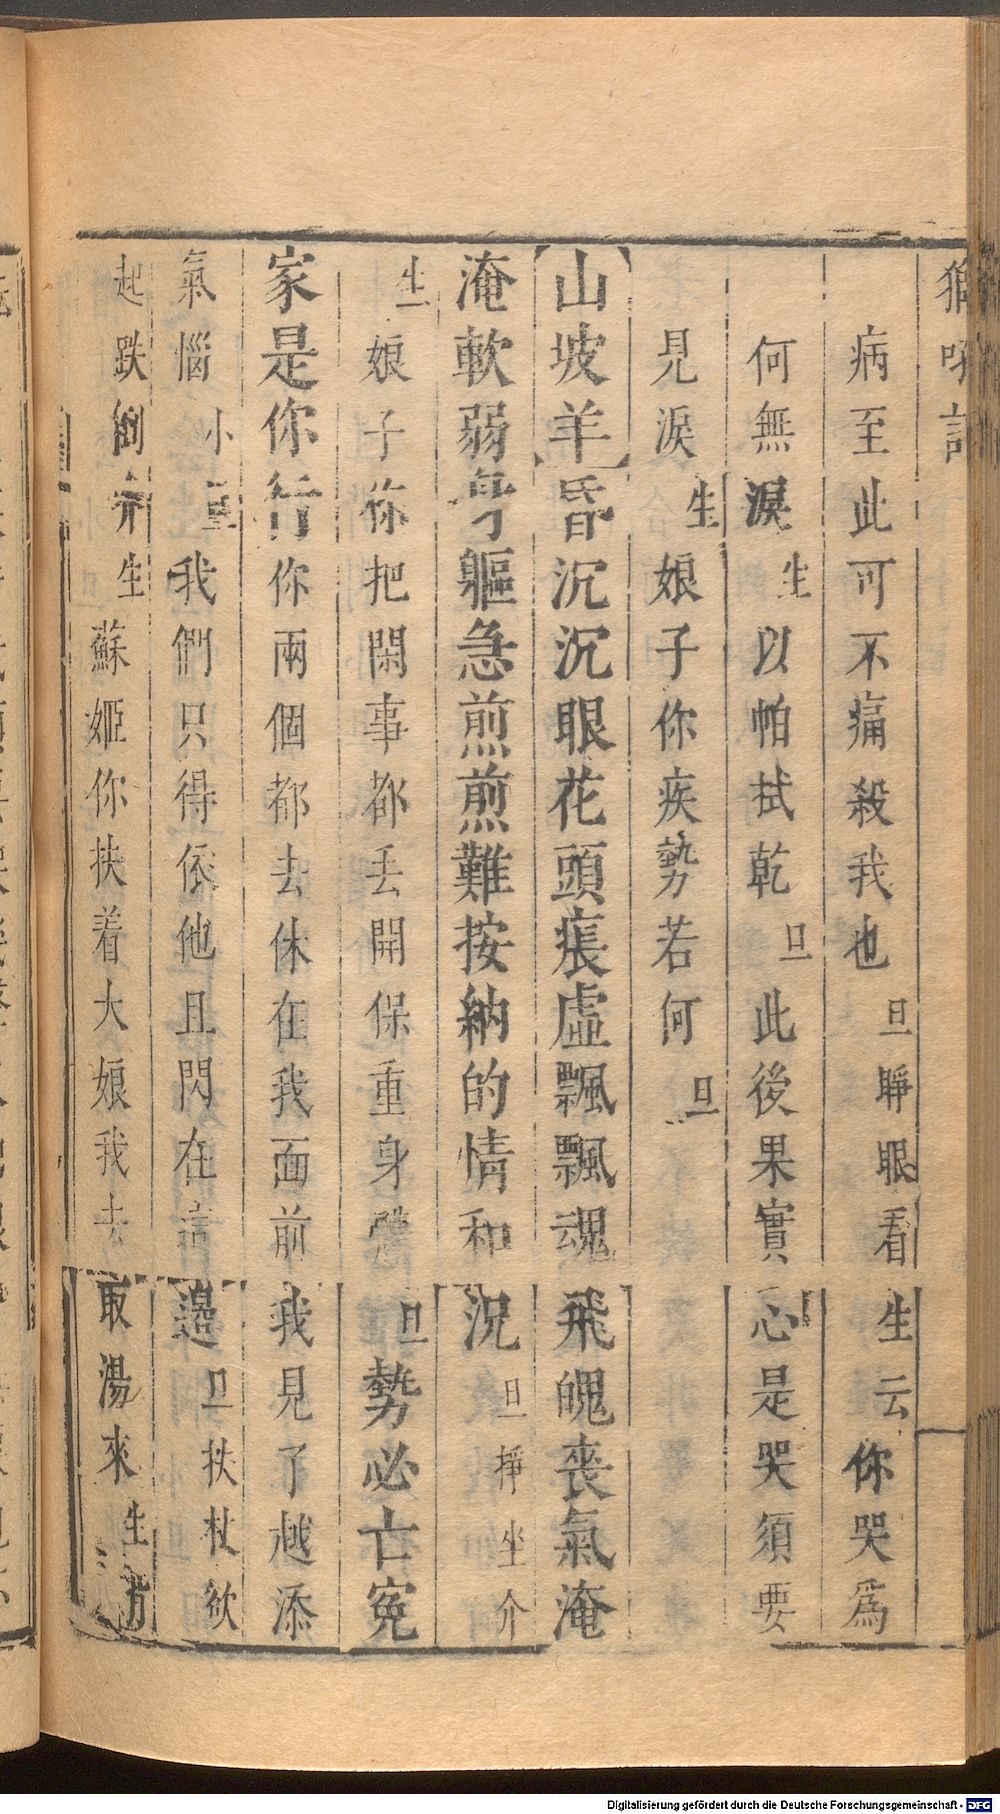 獅吼記
病至此可不痛殺我也旦睜眼看生云你哭爲
何無淚生以帕拭乾旦此後果實心是哭須要
見淚生娘子你疾勢若何旦
【山坡羊】昏沉沉眼花頭痕虛飄飄魂飛魄喪氣淹
淹軟弱身軀急煎煎難按納的情和況旦掙坐介
生娘子你把閑事都丢開保重身體旦勢必亡寃
家是你行你兩個都去休在我面前我見了越添
氣惱小旦我們只得依他且閃在這邊旦扶杖欲
起跌倒介生蘇姬你扶着大娘我去取湯來生
Digitalisierung gefördert durch die Deutsche Forschungsgemeinschaft - DFG